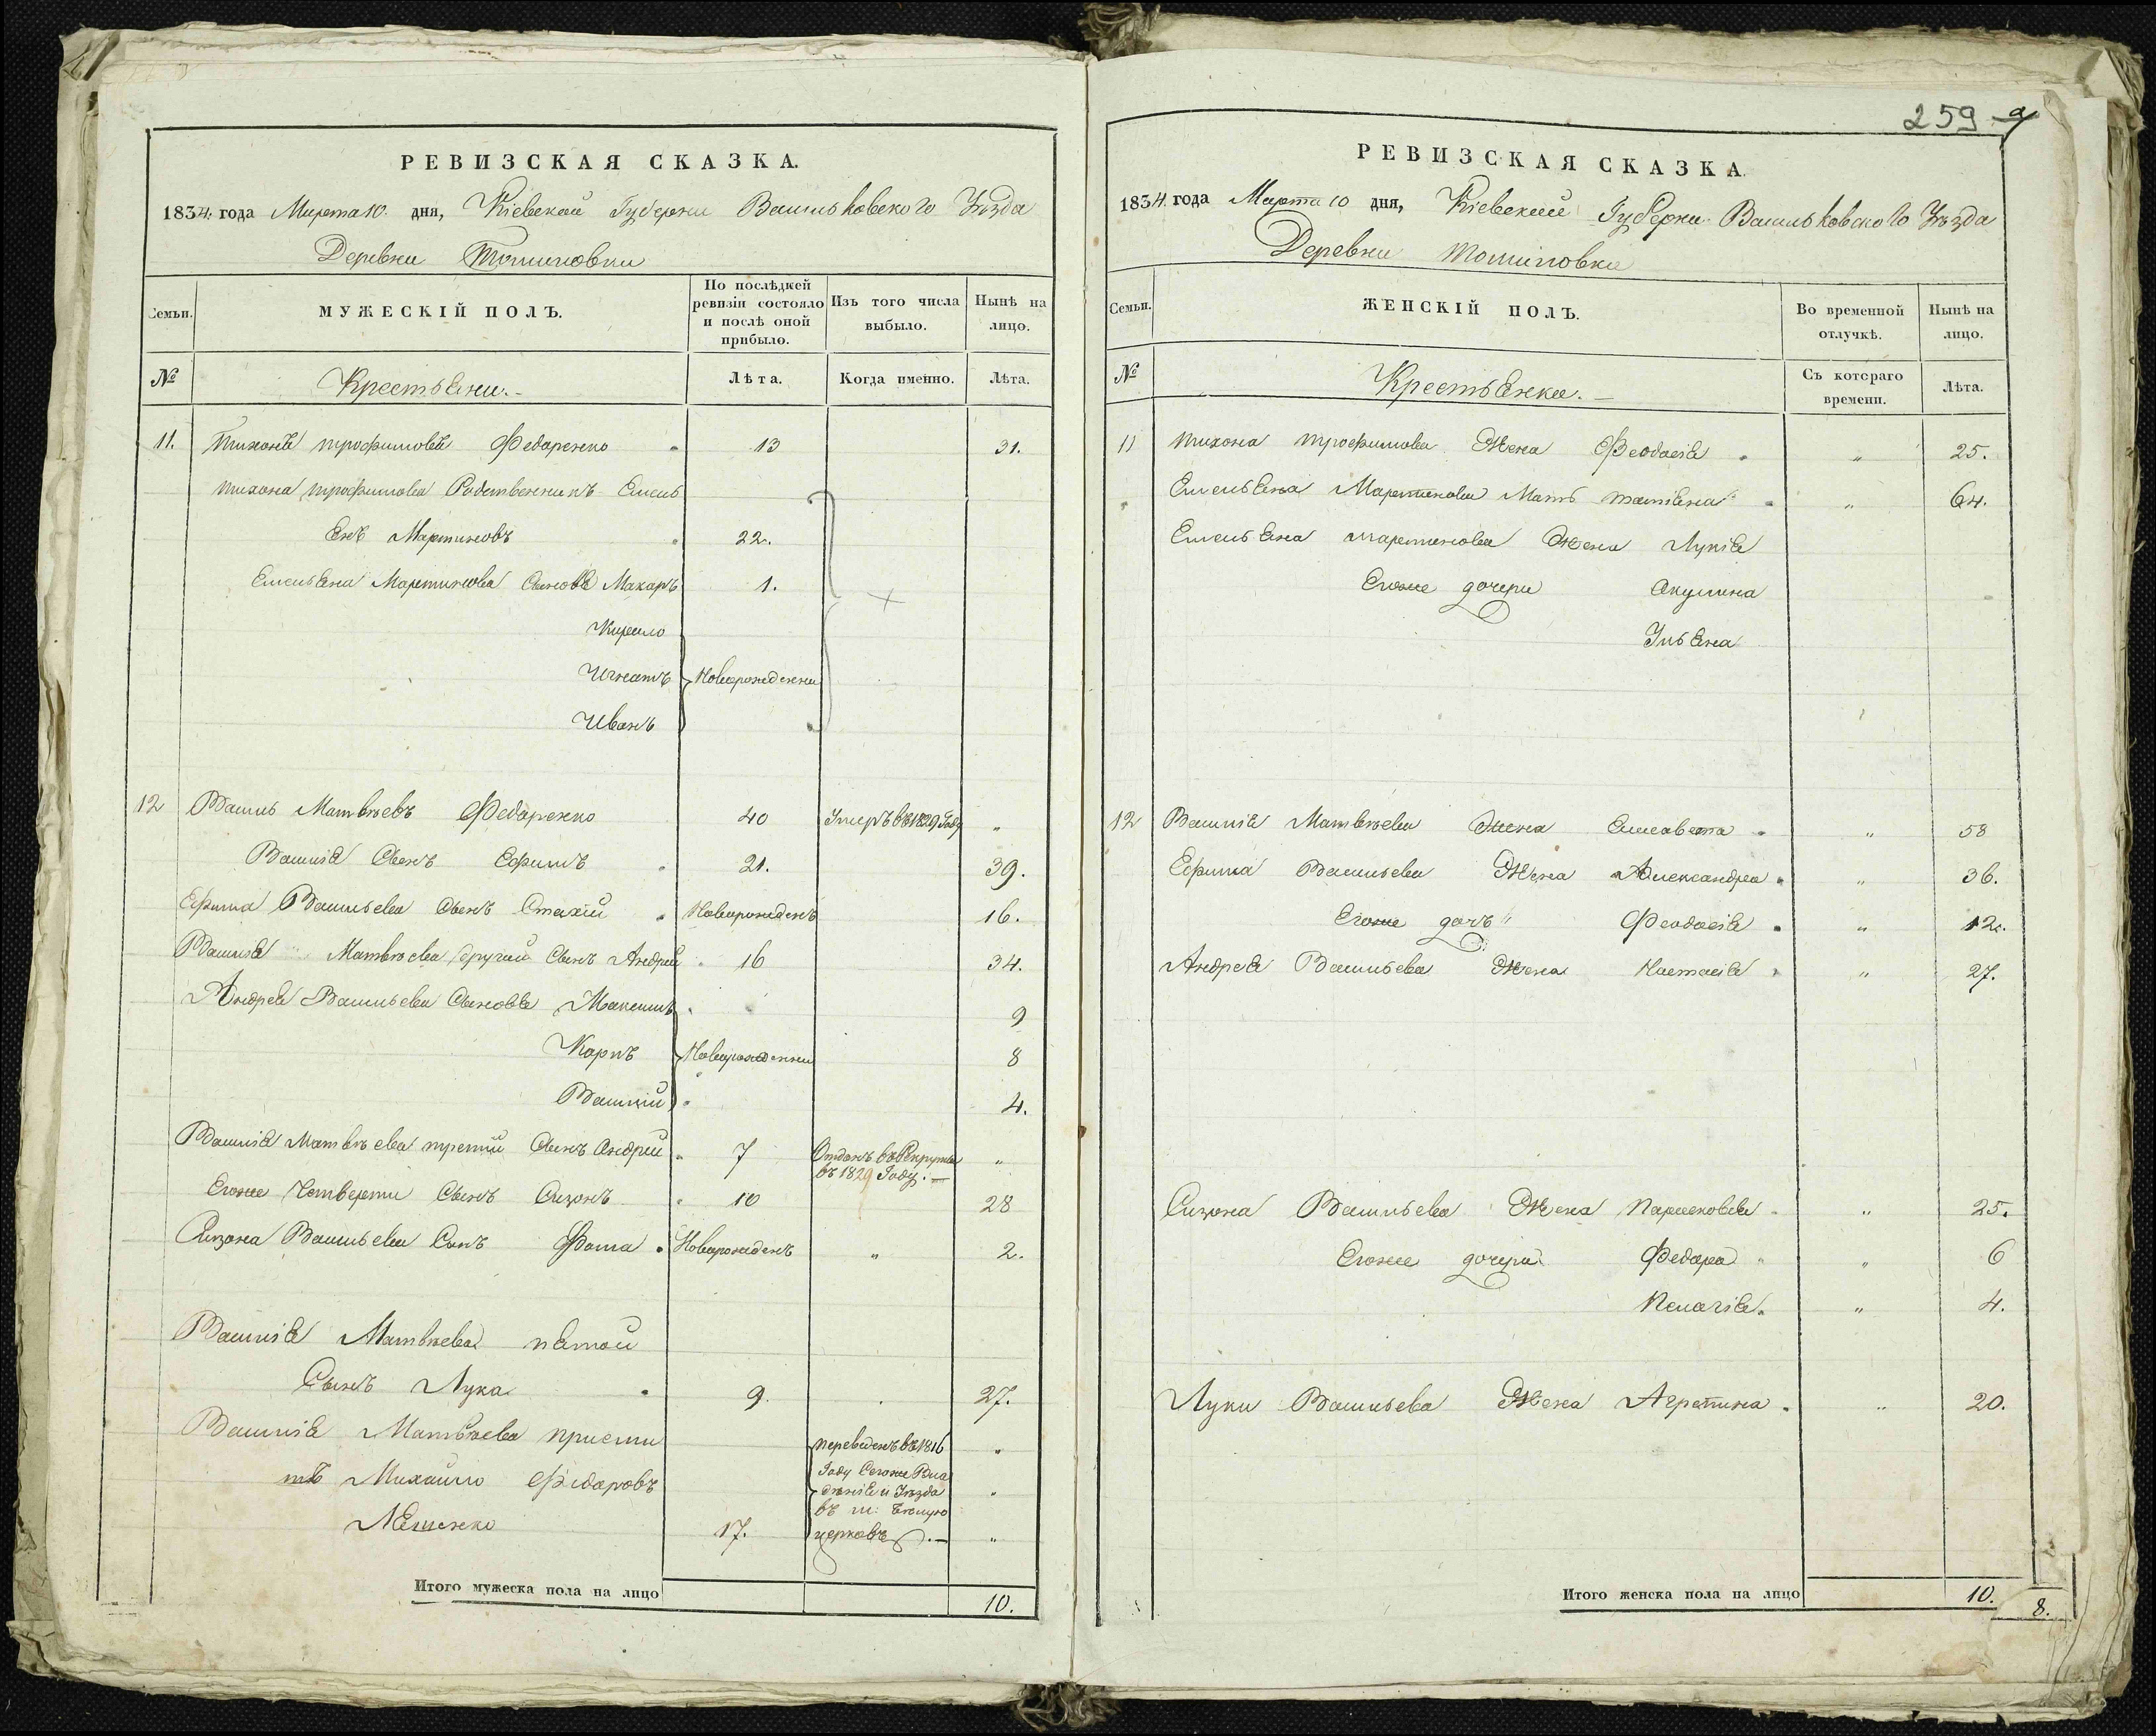 259
РЕВИЗСКАЯ СКАЗКА.
1834. года Марта 10. дня, Кіевской Губерни Васильковского Уѣзда
Деревни Томиловки
Семьи.
МУЖЕСКІЙ ПОЛЪ.
По послѣдней ревизіи состояло и послѣ оной прибыло.
Изъ того числа выбыло.
Нынѣ на лицо.
№
Крестьяни.-
Лѣта.
Когда именно.
Лѣта.
11. Тихонъ трофимовъ Федоренко 13 31.
тихона трофимова Родственникъ Емель
янъ Мартиновъ 22.
Емельяна Мартинова Сыновья Макаръ 1.
Кирило
Игнатъ Новорожденни
Иванъ
12 Василь Матвѣевъ Федоренко 40 Умеръ въ 1829 Году „
Василія Сынъ Ефимъ 21. 39.
Ефима Васильева Сынъ Стахій Новорожденъ 16.
Василія Матвѣева другий Сынъ Андрей 16 34.
Андрея Васильева Сыновья Максимъ 9
Карпъ Новорожденни 8
Василій 4.
Василія Матвѣева третій Сынъ Андрей 7 Отданъ въ Рекруты „
въ 1829 Году.—
Егоже Четверти Сынъ Сизонъ 10 28
Сизона Васильева Сынъ Фома Новорожденъ „ 2.
Василія Матвѣева пятой
Сынъ Лука 9. 27.
Василія Матвѣева приеми переведенъ въ 1816 „
тъ Михайло Федоровъ Году Сегоже Вла
дѣнія и Уѣзда „
въ м: Бѣлую
Ляшенко 17. церковъ.— „
Итого мужеска пола на лицо 10.
РЕВИЗСКАЯ СКАЗКА.
1834. года Марта 10 дня, Кіевской Губерни Васильковского Уѣзда
Деревни Томиловки
Семьи.
ЖЕНСКІЙ ПОЛЪ.
Во временной отлучкѣ.
Нынѣ на лицо.
№
Крестьянки.—
Съ котораго времени.
Лѣта.
11 тихона трофимова Жена Феодосія „ 25.
Емельяна Мартинова Мать татяна „ 64.
Емельяна мартинова Жена Лукія
Егоже дочери Акулина
Ульяна
12 Василія Матвѣева Жена Елисавета „ 58
Ефима Васильева Жена Александра „ 36.
Егоже дочъ Феодосія „ 12.
Андрея Васильева Жена Настасія „ 27.
Сизона Васильева Жена Парасковія „ 25.
Егоже дочери Федора „ 6
Пелагія „ 4.
Луки Васильева Жена Агрепина „ 20.
Итого женска пола на лицо 10.
8.